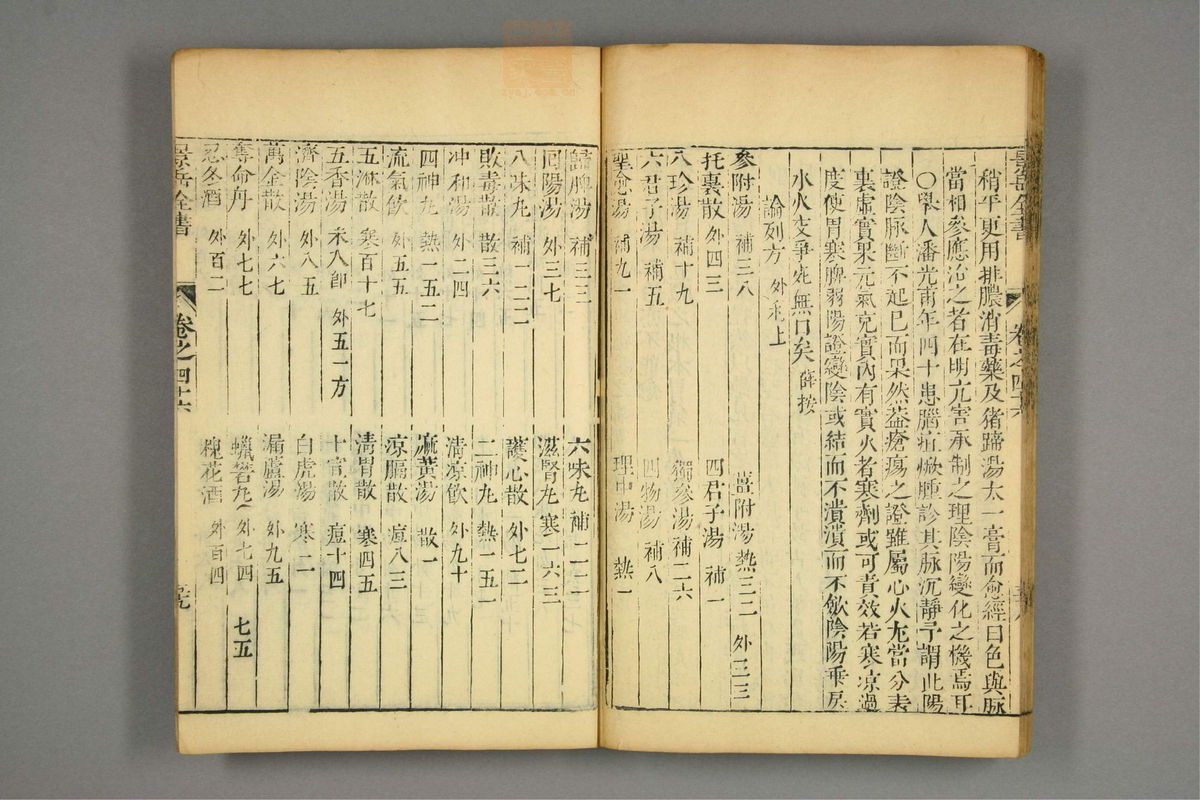 景岳全書 卷之四十六
稍平更用排膿消毒藥及猪蹄湯太一膏而愈經曰色與脉
當相參應治之者在明亢害承制之理陰陽變化之機焉耳
〇舉人潘光甫年四十患腦疽焮腫診其脉沉靜予謂此陽
證陰脉斷不起已而果然蓋瘡瘍之證雖屬心火尤當分表
裏虛實果元氣充實內有實火者寒劑或可責效若寒凉過
度使胃寒脾弱陽證變陰或結而不潰潰而不斂陰陽乖戾
水火交爭死無日矣 薛按
論列方 外科上
參附湯 補三八 薑附湯 熱三二 外三三
托裏散 外四三 四君子湯 補一
八珍湯 補十九 獨參湯 補二六
六君子湯 補五 四物湯 補八
聖愈湯 補九一 理中湯 熱一
歸脾湯 補三三 六味丸 補二二
回陽湯 外三七 滋腎丸 寒一六三
八味丸 補一二二 護心散 外七二
敗毒散 散三六 二神丸 熱一五一
冲和湯 外二四 清凉飲 外九十
四神丸 熱一五二 麻黃湯 散一
流氣飲 外五五 凉膈散 痘八三
五淋散 寒百十七 清胃散 寒四五
五香湯 未入卽 外五一方 十宣散 痘十四
濟陰湯 外八五 白虎湯 寒二
萬金散 外六七 漏蘆湯 外九五
奪命丹 外七七 蠟礬丸 外七四 七五
忍冬酒 外百二 槐花酒 外百四
景岳全書 卷之四十六